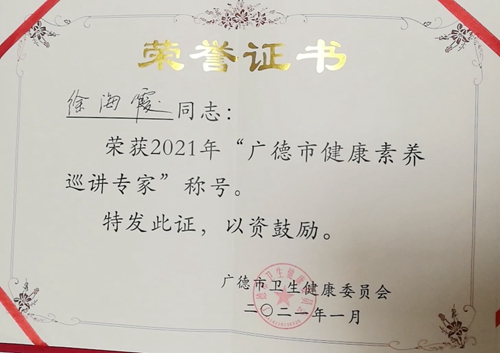 荣誉证书
徐海霞同志：
荣获2021年“广德市健康素养
巡讲专家”称号。
特发此证，以资鼓励。
广德市卫生健康委员会
二〇二一年一月